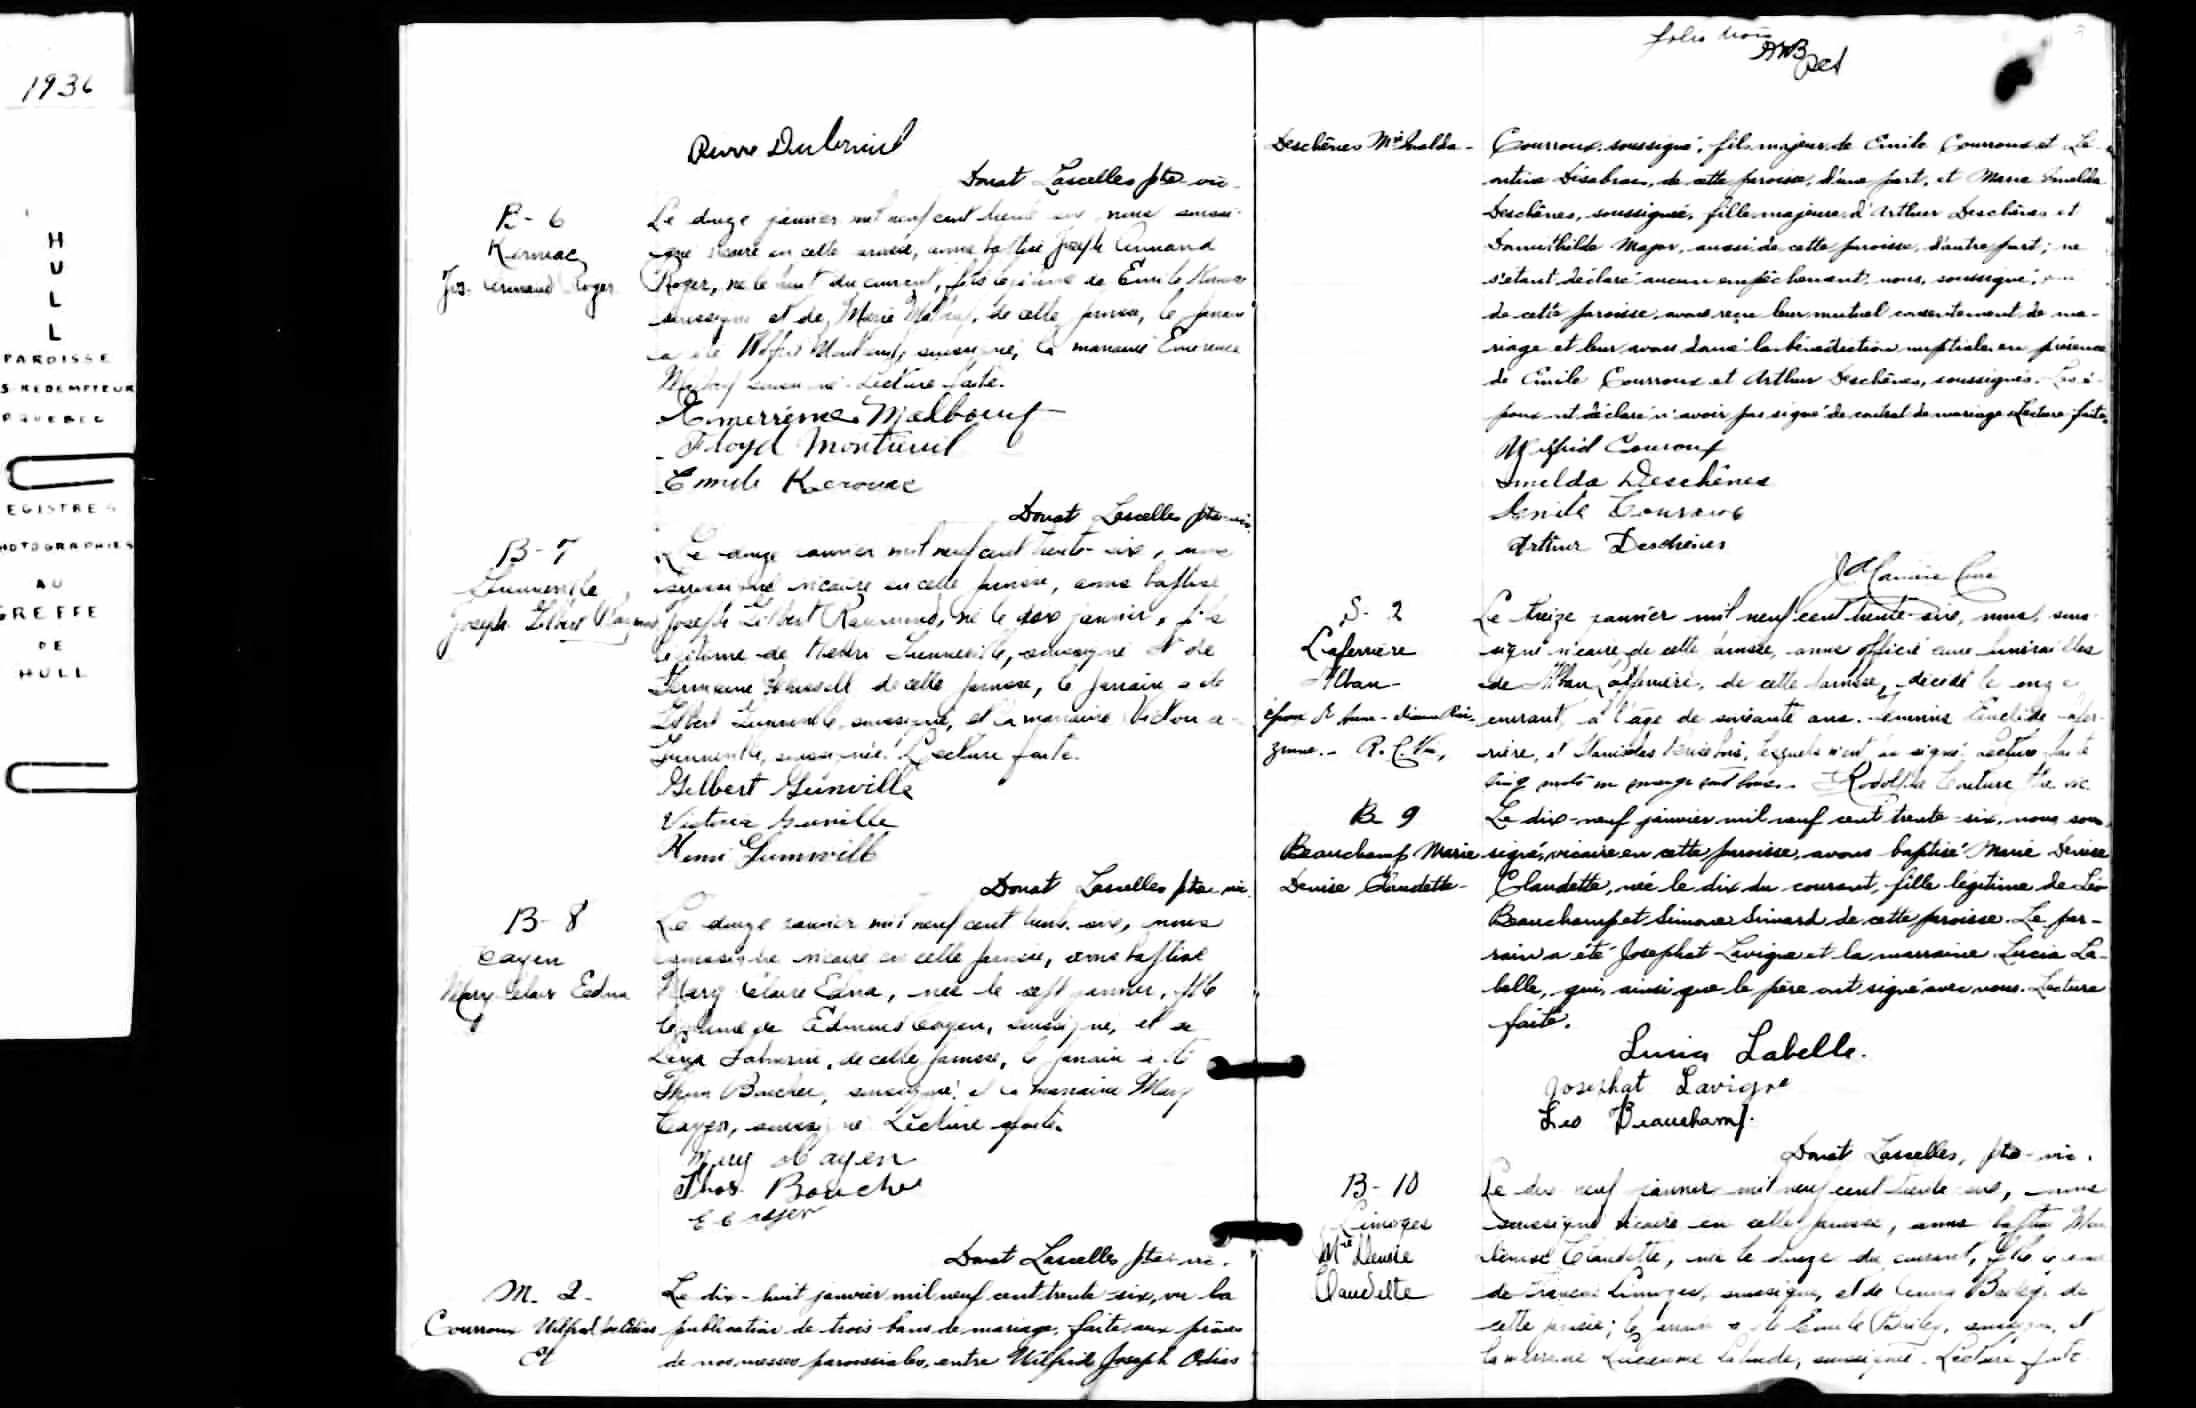 1936
H
U
L
L
PAROISSE
S REDEMPTEUR
QUEBEC
EGISTRES
HOTOGRAPHIES
AU
GREFFE
DE
HULL
Pierre Dubreuil
Donat Lascelles ptre vic.
B-6
Kerouac
Jos. Armand Roger
Le douze janvier mil neuf cent trente six nous soussi-
gné vicaire en cette paroisse, avons baptisé Joseph Armand
Roger, né le huit du courant, fils légitime de Emile Kerouac
soussigné et de Marie Malboeuf, de cette paroisse, le parrain
a été Montreuil, soussigné, la marraine Emerence
Malboeuf soussignée. Lecture faite.
Emerrence Malboeuf
Floyd Montreuil
Emile Kerouac
Donat Lascelles ptre vic.
B-7
Joseph Gilbert Raymond
Le douze janvier mil neuf cent trente-six, nous
soussigné vicaire en cette paroisse, avons baptisé
Joseph Gilbert Raymond, né le dix janvier, fils
légitime de Henri Guenneville, soussigné et de
Germaine de cette paroisse, le parrain a été
Gilbert Guenneville, soussigné, et la marraine Victoria
Guenneville, soussignée. Lecture faite.
Gilbert Guinville
Victoria
Henri
Donat Lascelles ptre vic.
B-8
Cayen
Mary Claire Edna
Le douze janvier mil neuf cent trente-six, nous
soussigné vicaire en cette paroisse, avons baptisé
Mary Claire Edna, née le sept janvier, fille
légitime de Edmund Cayen, soussigné, et de
de cette paroisse, le parrain a été
Thos Boucher, soussigné, et la marraine Mary
Cayen, soussignée. Lecture faite.
Mary Cayen
Thos. Boucher
E Cayen
Donat Lascelles ptre vic.
M. 2-
Courroux Wilfrid Jos Odias
et
Le dix-huit janvier mil neuf cent trente-six, vu la
publication de trois bans de mariage, faite aux prônes
de nos messes paroissiales, entre Wilfrid Joseph Odias
folio trois
Deschênes Mie Imelda-
Courroux, soussigné, fils majeur de Emile Courroux et Lé-
ontine Désabrais, de cette paroisse, d'une part, et Marie Imelda
Deschênes, soussignée, fille majeure d'Arthur Deschênes et
Domithilde Major, aussi de cette paroisse, d'autre part; ne
s'étant déclaré aucun empêchement, nous, soussigné,
de cette paroisse, avons reçu leur mutuel consentement de ma-
riage et leur avons donné la bénédiction nuptiale en présence
de Emile Courroux et Arthur Deschênes, soussignés. Les é-
poux ont déclaré n'avoir pas signé de contrat de mariage. Lecture faite.
Wilfrid Couroux
Imelda Deschênes
Emile Couroux
Arthur Deschênes
S-2
Laferrière
Alban-
époux de
R.C.V.,
Le treize janvier mil neuf cent trente-six, nous, sous-
signé vicaire de cette paroisse, avons officié aux funérailles
de Alban Laferrière, de cette paroisse, décédé le onze
courant, à l'âge de soixante ans. Témoins Euclide Lafer-
rière, et Stanislas lesquels n'ont pas signé. Lecture faite
Cinq mots en marge sont bons. Rodolphe Couture Ptre vic.
B 9
Beauchamp Marie
Denise Claudette-
Le dix-neuf janvier mil neuf cent trente-six, nous sous-
signé, vicaire en cette paroisse, avons baptisé Marie Denise
Claudette, née le dix du courant, fille légitime de Léo
Beauchamp et Simone Simard de cette paroisse. Le par-
rain a été Josephat Lavigne et la marraine Lucia La-
belle, qui, ainsi que le père ont signé avec nous. Lecture
faite.
Lucia Labelle.
Josephat Lavigne
Leo Beauchamp.
Donat Lascelles, ptre-vic.
B-10
Limoges
Mie Denise
Claudette
Le dix neuf janvier mil neuf cent trente six, nous
soussigné vicaire en cette paroisse, avons baptisé Marie
Denise Claudette, née le douze du courant, fille légitime
de Limoges, soussigné, et de de
cette paroisse; le parrain a été Emile soussigné, et
la marraine Lalonde, soussignée. Lecture faite.